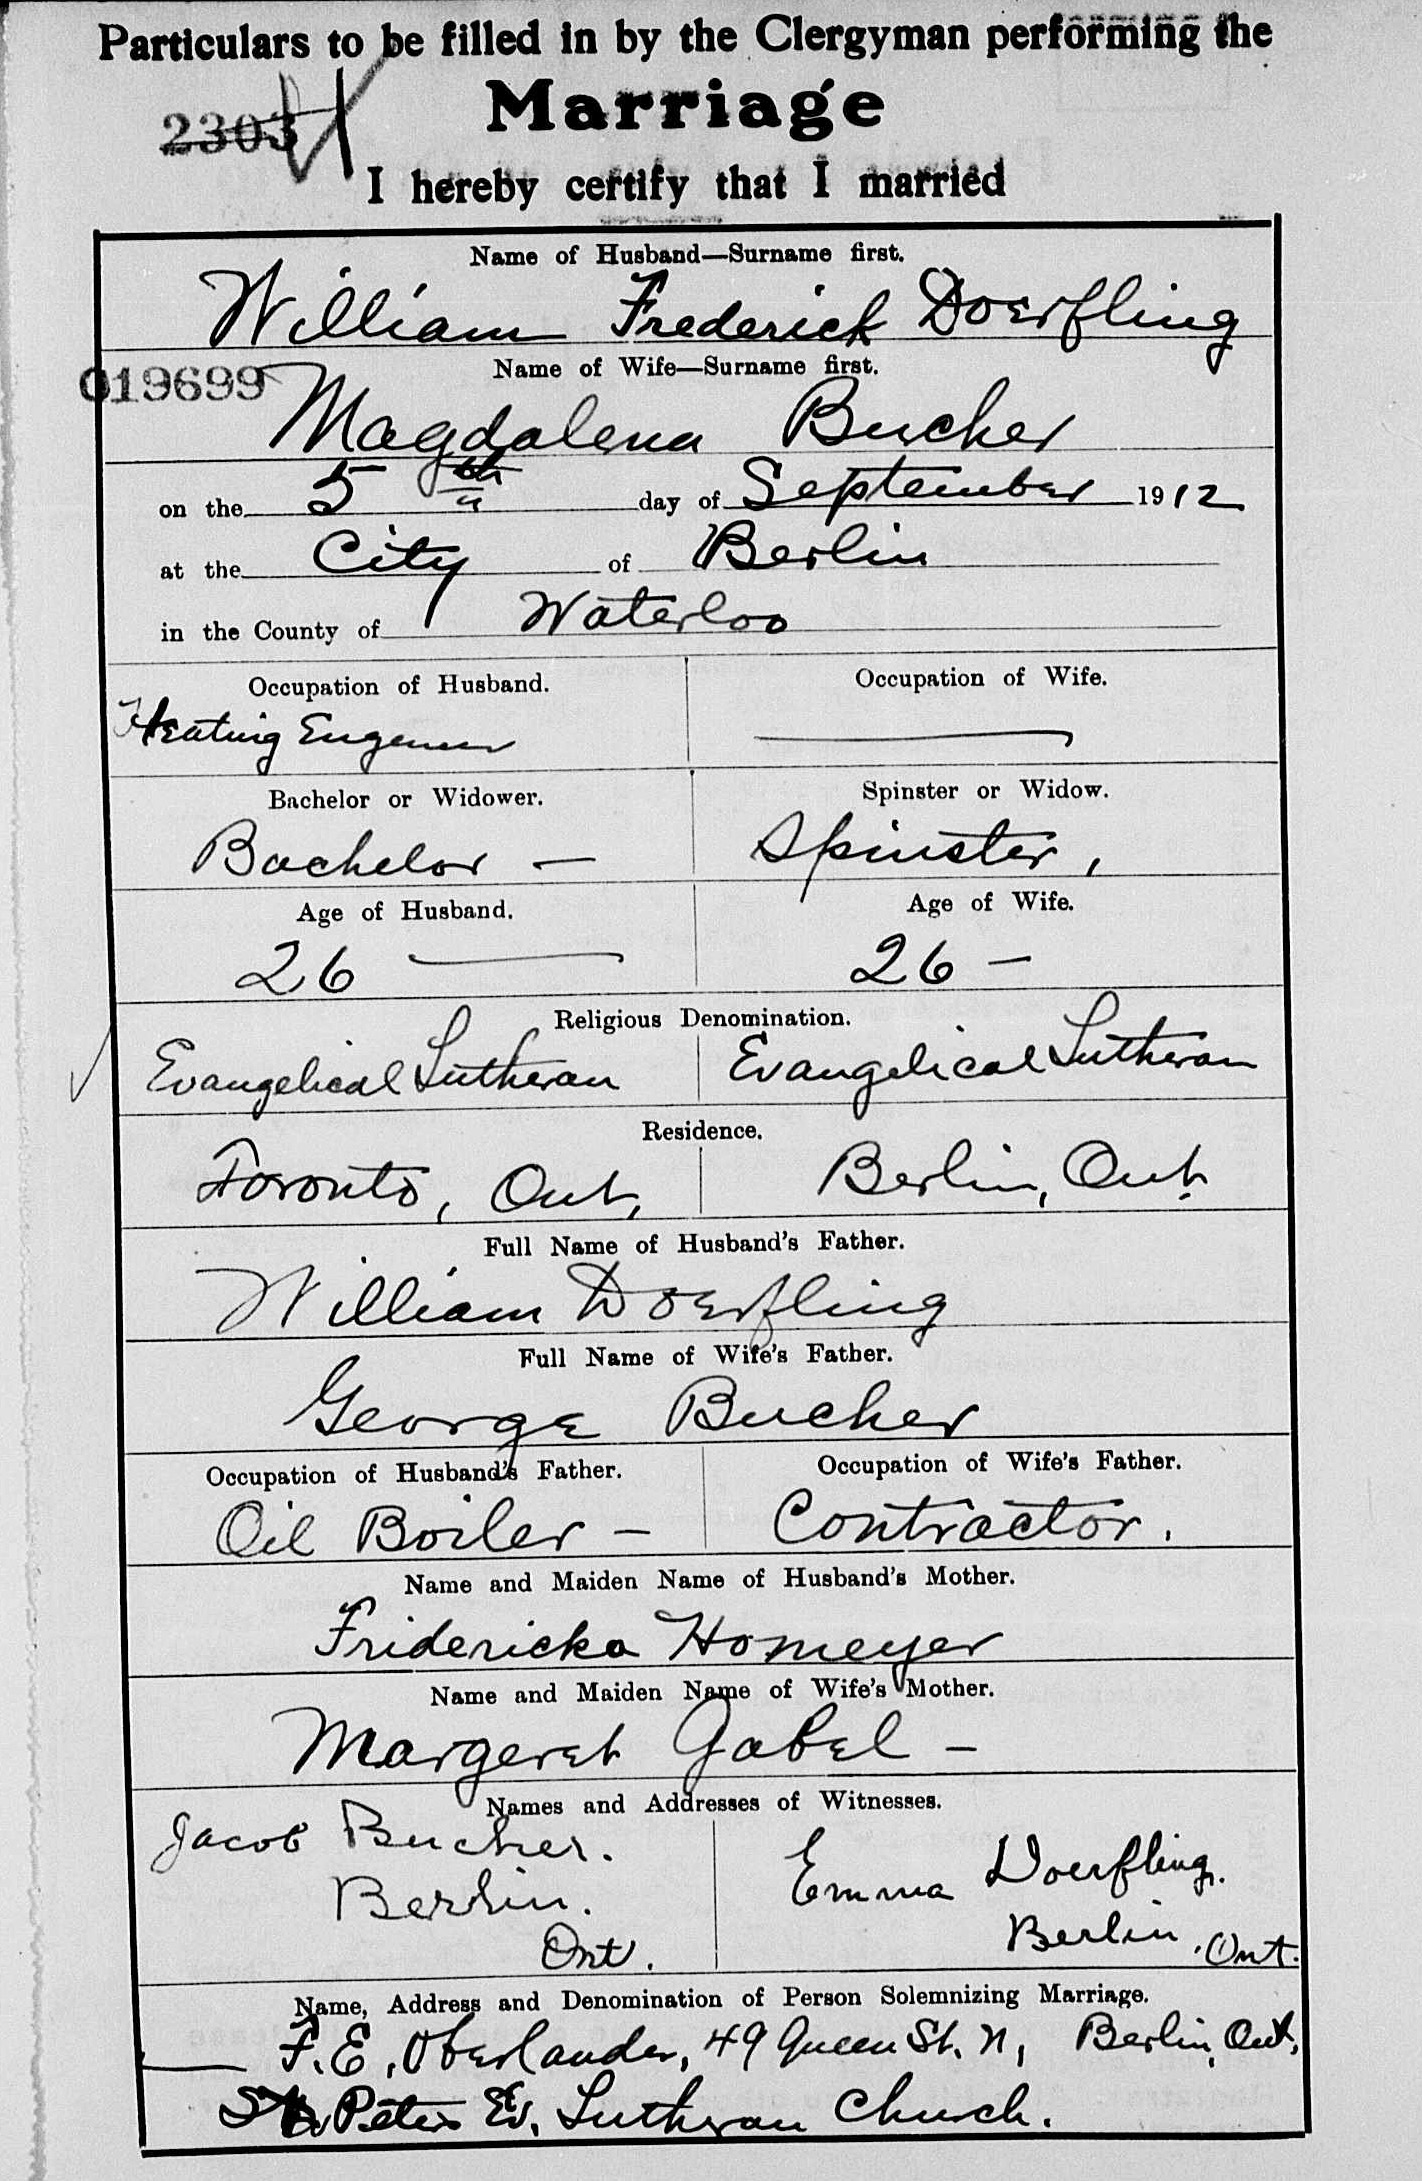 Particulars to be filled in by the Clergyman performing the
Marriage
2303
I hereby certify that I married
Name of Husband—Surname first.
William Frederick Doerfling
Name of Wife—Surname first.
019699
Magdalena Bucher
on the 5th day of September 1912
at the City of Berlin
in the County of Waterloo
Occupation of Husband. Occupation of Wife.
Heating Engineer
Bachelor or Widower. Spinster or Widow.
Bachelor — Spinster,
Age of Husband. Age of Wife.
26 — 26 —
Religious Denomination.
Evangelical Lutheran Evangelical Lutheran
Residence.
Toronto, Ont, Berlin, Ont.
Full Name of Husband's Father.
William Doerfling
Full Name of Wife's Father.
George Bucher
Occupation of Husband's Father. Occupation of Wife's Father.
Oil Boiler — Contractor.
Name and Maiden Name of Husband's Mother.
Fridericka Homeyer
Name and Maiden Name of Wife's Mother.
Margeret Gabel —
Names and Addresses of Witnesses.
Jacob Bucher. Emma Doerfling.
Berlin. Berlin, Ont.
Ont.
Name, Address and Denomination of Person Solemnizing Marriage.
— F. E. Oberlander, 49 Queen St. N, Berlin, Ont,
St. Peters Ev. Lutheran Church.